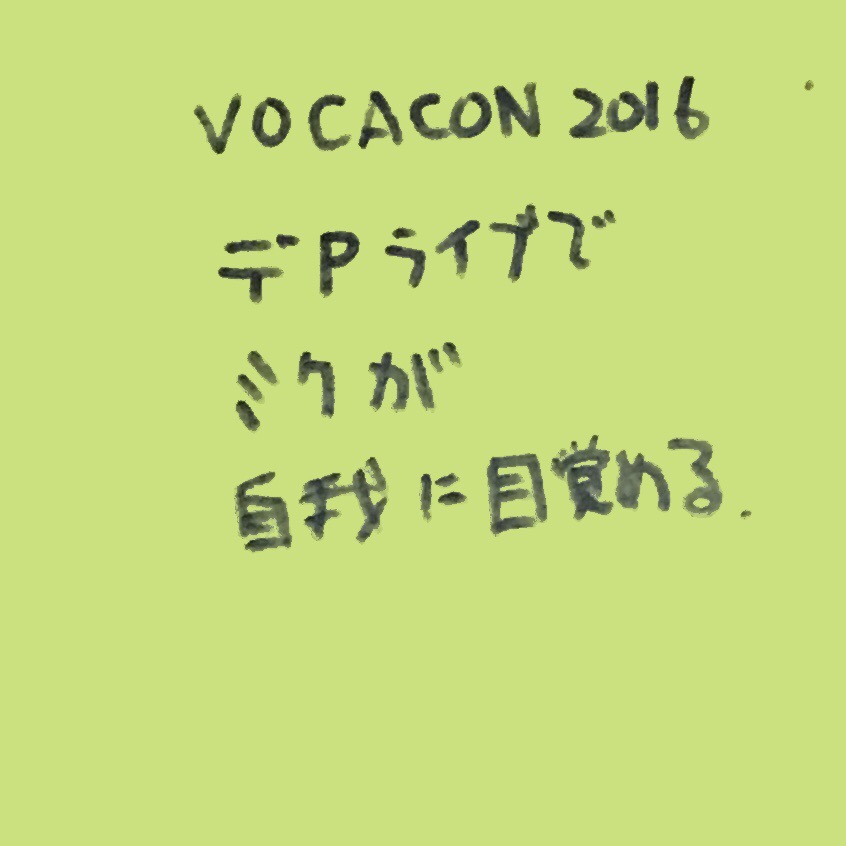 VOCACON 2016
デPライブで
ミクが
自我に目覚める.